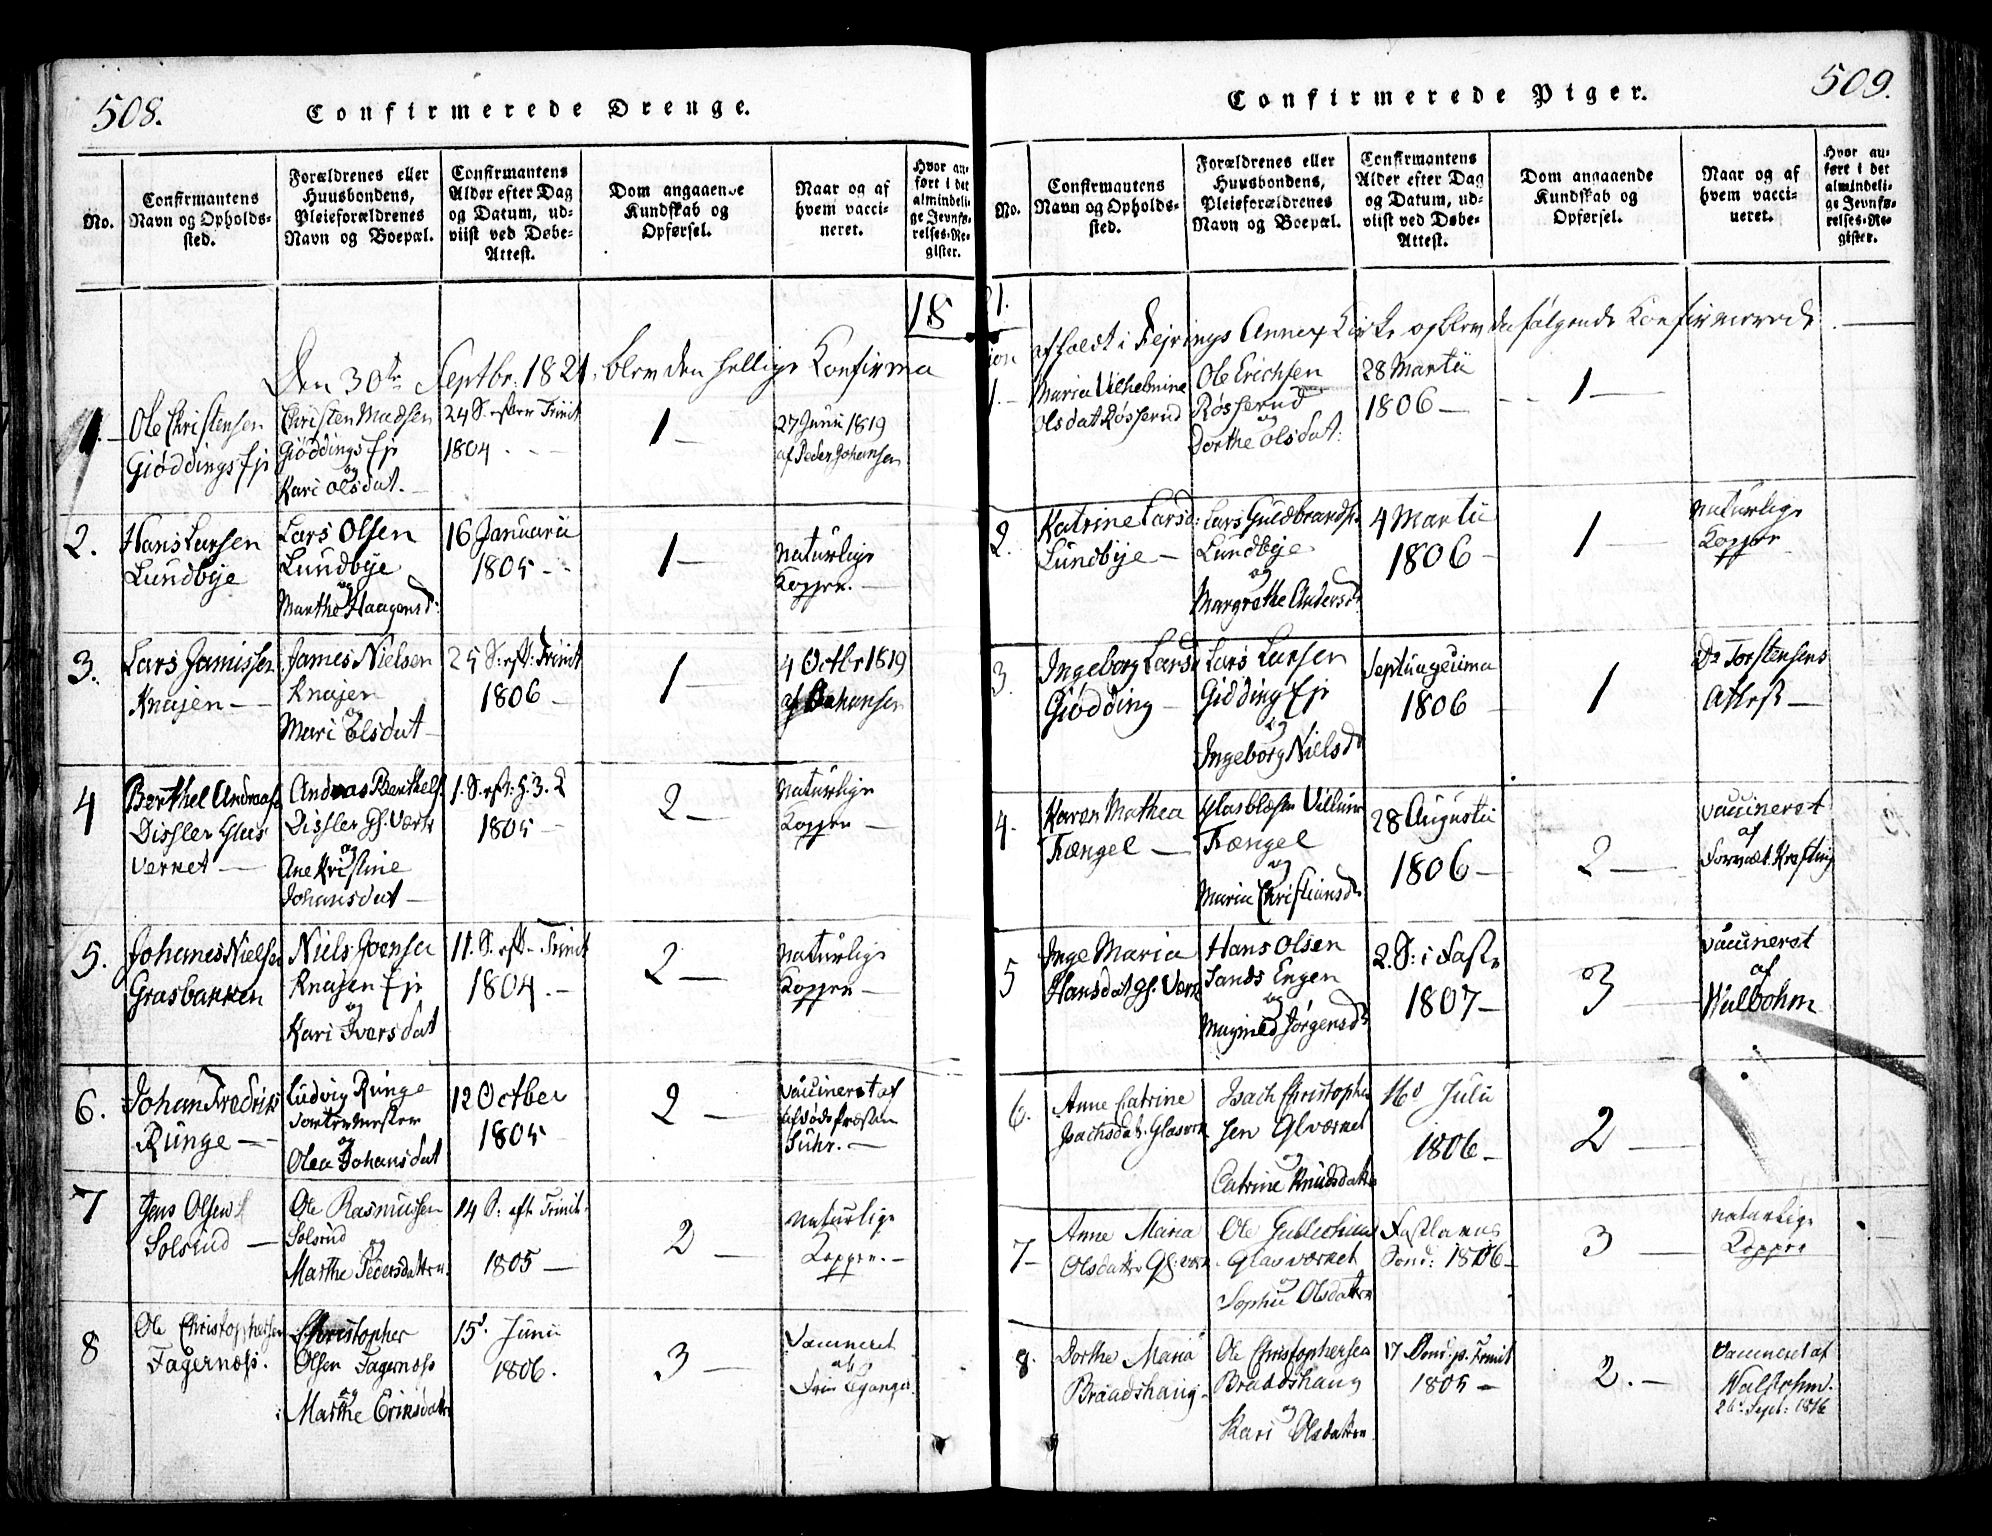 508.
Confirmerede Drenge.
No.
Confirmantens
Navn og Opholds-
sted.
Forældrenes eller
Huusbondens,
Pleieforældrenes
Navn og Boepæl.
Confirmantens
Alder efter Dag
og Datum, ud-
viist ved Døbe-
Attest.
Dom angaaende
Kundskab og
Opførsel.
Naar og af
hvem vacci-
neret.
Hvor an-
ført i det
almindeli-
ge Jevnfø-
relses-Re-
gister.
18
Den 30te Septbr: 1821, blev den hellige Konfirma
1.
Ole Christensen
Giøddings Ejr
Christen Madsen
Giøddings Ejr
og
Kari Olsdat.
24 S. efter Trinit
1804
1
27 Junii 1819
af Peder Johansen
2.
Hans Larsen
Lundbye
Lars Olsen
Lundbye
og
Marthe Haagensd:
16 Januarii
1805
1
Naturlige
Kopper.
3.
Lars Jamissen
Knajen
James Nielsen
Knajen
og
Mari Olsdat
25 S: eft: Trinit
1806
1
4 Octbr 1819
af Johansen
4
Berthel Andreas
Dissler Glas
Verket
Andreas Berthels.
Dissler Gl. Værk
og
Ane Kristine
Johansdat
1. S. eft: H. 3. K
1805
2
Naturlige
Kopper
5.
Johanes Nielsen
Grasbakken
Niels Joensen
Knajen Ejr
og
Kari Iversdat
11. S. eft. Trinit
1804.
2
Naturlige
Kopper
6.
Johan Fredrik
Runge
Ludvig Runge
og
Olea Johansdat
12 October
1805
2
Vaccineret af
afdøde Præsten
Suhr.
7
Jens Olsen
Solsrud
Ole Rasmussen
Solsrud
og
Marthe Pedersdatter.
14 S: eft Trinit.
1805
2
Naturlige
Kopper.
8
Ole Christophersen
Fagernæss.
Christopher
Olsen Fagernæss
og
Marthe Eriksdatter
15d. Junii
1806.
3
Vaccineret
af
509.
Confirmerede Piger.
No.
Confirmantens
Navn og Opholds-
sted.
Forældrenes eller
Huusbondens,
Pleieforældrenes
Navn og Boepæl.
Confirmantens
Alder efter Dag
og Datum, ud-
viist ved Døbe-
Attest.
Dom angaaende
Kundskab og
Opførsel.
Naar og af
hvem vacci-
neret.
Hvor an-
ført i det
almindeli-
ge Jevnfø-
relses-Re-
gister.
21.
tion afholdt i Fejrings Annex Kirke og blev da følgende Konfirmerede
1.
Maria Vilhelmine
Olsdat Røsserud
Ole Erichsen
Røsserud
og
Dorthe Olsdat:
28 Martii
1806
1
2.
Katrine Larsd:
Lundbye
Lars Guldbrands.
Lundbye
og
Margrethe Andersd
4 Martii
1806
1
Naturlige
Kopper
3.
Ingeborg Larsd
Giødding
Lars Larsen
Gidding Ejr
og
Ingeborg Nielsd
Septuagesima
1806
1
Dr Torstensens
Attest
4.
Karen Mathea
Trængel
Trængel
og
Maria Christiansd
28 Augustii
1806
2
Vaccineret
af
5
Inge Maria
Hansdat Gl. Verk
Hans Olsen
Sands Engen
og
Magnild Jørgensd
2. S: i Faste
1807
3
Vaccineret
af
Walbohm
6.
Anne Catrine
Isachsdat. Glasverk
Isach Christopher
sen Glværket
og
Catrine Knudsdatter
16d Julii
1806
2
7
Anne Maria
Olsdatter Gl: værk
Ole Gulbrandsen
Glasværket
og
Sophie Olsdatter
Fastelavns
Sond: 1806
3
Naturlige
Kopper
8.
Dorthe Maria
Braadshaug
Ole Christophersen
Braadshaug
og
Kari Olsdatter.
17 Sond. p. Trinit
1805
2.
Vaccineret af
Walbohm.
26d Sept: 1816